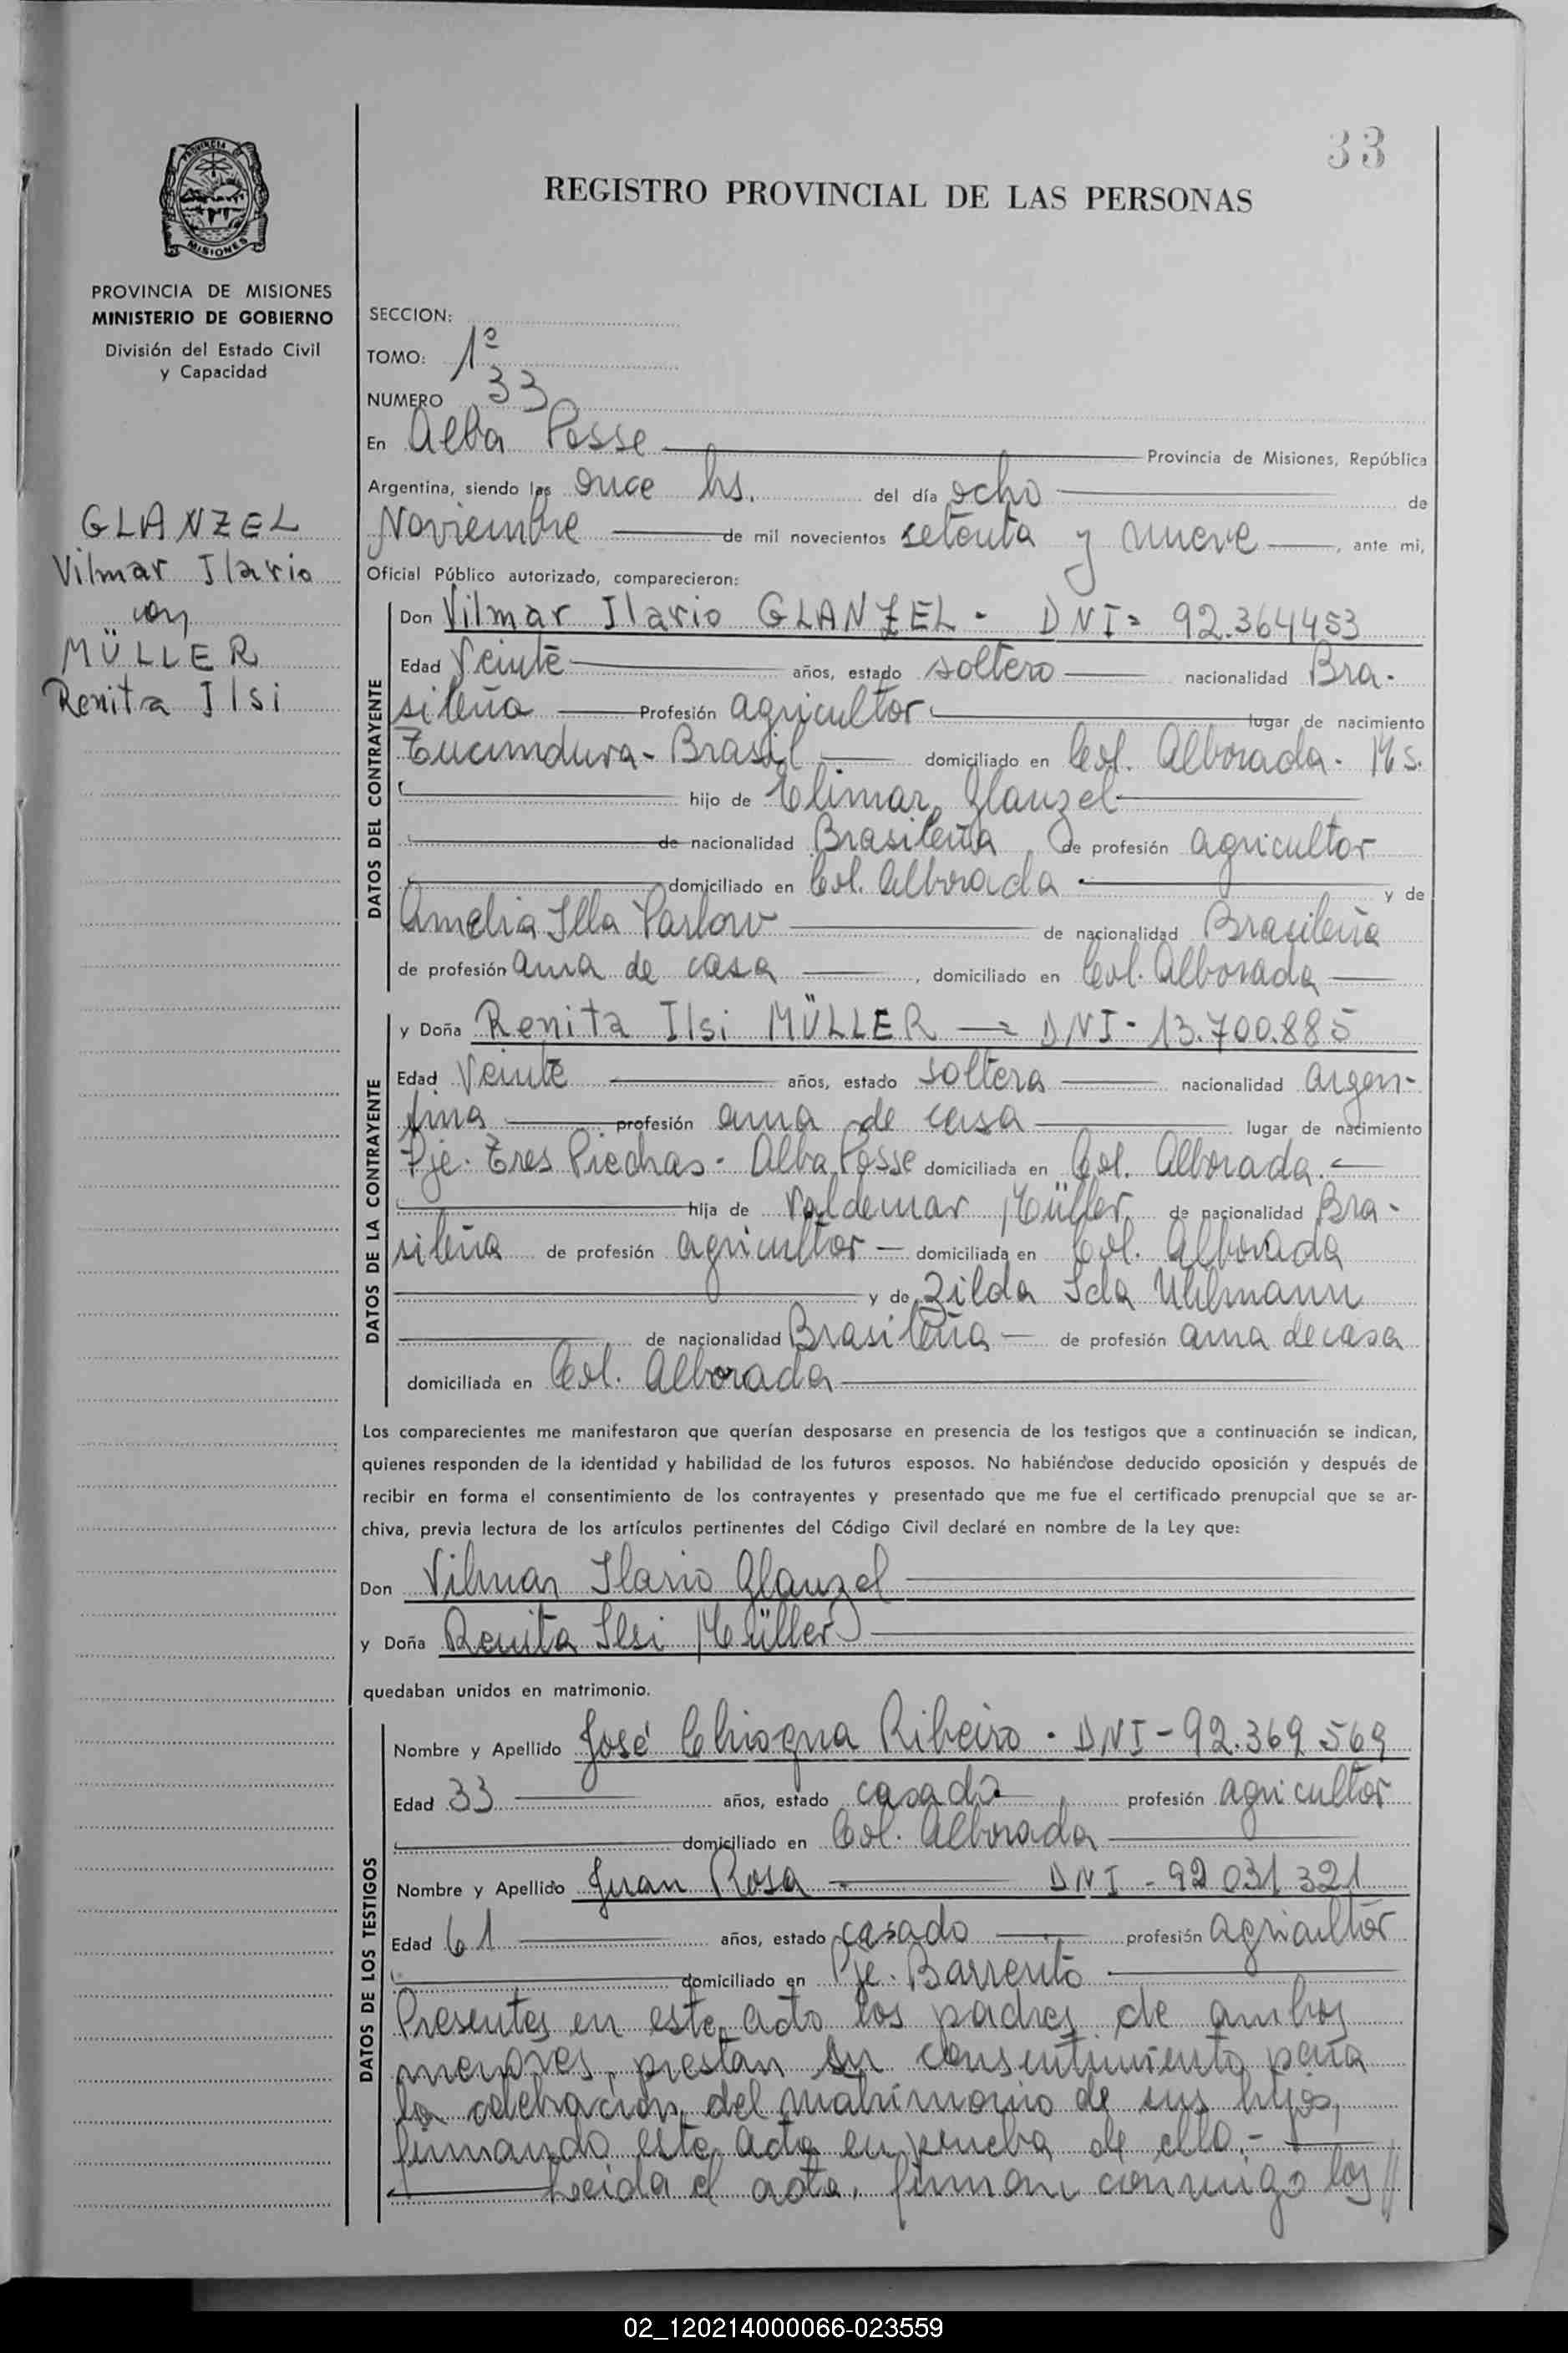 33
REGISTRO PROVINCIAL DE LAS PERSONAS
PROVINCIA DE MISIONES
MISIONES
PROVINCIA DE MISIONES
MINISTERIO DE GOBIERNO
División del Estado Civil
y Capacidad
GLANZEL
Vilmar Ilario
con
MÜLLER
Renita Ilsi
SECCION:
TOMO: 1º
NUMERO 33
En Alba Posse Provincia de Misiones, República
Argentina, siendo las once hs. del día ocho de
Noviembre de mil novecientos setenta y nueve, ante mi,
Oficial Público autorizado, comparecieron:
DATOS DEL CONTRAYENTE
Don Vilmar Ilario GLANZEL - DNI= 92.364453
Edad Veinte años, estado soltero nacionalidad Bra-
sileña Profesión agricultor lugar de nacimiento
Tucunduva - Brasil domiciliado en Col. Alborada - Ms.
hijo de Elimar Glanzel
de nacionalidad Brasileña de profesión agricultor
domiciliado en Col. Alborada y de
Amelia Illa Parlow de nacionalidad Brasileña
de profesión ama de casa, domiciliado en Col. Alborada
DATOS DE LA CONTRAYENTE
y Doña Renita Ilsi MÜLLER = DNI - 13.700.885
Edad Veinte años, estado soltera nacionalidad argen-
tina profesión ama de casa lugar de nacimiento
Pje. Tres Piedras - Alba Posse domiciliada en Col. Alborada.
hija de Valdemar Müller de nacionalidad Bra-
sileña de profesión agricultor domiciliada en Col. Alborada
y de Zilda Ida Uhlmann
de nacionalidad Brasileña de profesión ama de casa
domiciliada en Col. Alborada
Los comparecientes me manifestaron que querían desposarse en presencia de los testigos que a continuación se indican,
quienes responden de la identidad y habilidad de los futuros esposos. No habiéndose deducido oposición y después de
recibir en forma el consentimiento de los contrayentes y presentado que me fue el certificado prenupcial que se ar-
chiva, previa lectura de los artículos pertinentes del Código Civil declaré en nombre de la Ley que:
Don Vilmar Ilario Glanzel
y Doña Renita Ilsi Müller
quedaban unidos en matrimonio.
DATOS DE LOS TESTIGOS
Nombre y Apellido José Chiogna Ribeiro - DNI - 92.369 569
Edad 33 años, estado casado profesión agricultor
domiciliado en Col. Alborada
Nombre y Apellido Juan Rosa DNI - 92 031 321
Edad 61 años, estado casado profesión agricultor
domiciliado en Pje. Barrerito
Presentes en este acto los padres de ambos
menores, prestan su consentimiento para
la celebración del matrimonio de sus hijos,
firmando este acta en prueba de ello.-
Leida el acta, firman conmigo los //
02_120214000066-023559